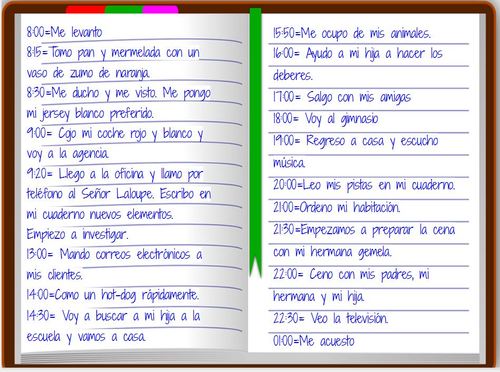 8:00=Me levanto
8:15= Tomo pan y mermelada con un
vaso de zumo de naranja.
8:30=Me ducho y me visto. Me pongo
mi jersey blanco preferido.
9:00= Cojo mi coche rojo y blanco y
voy a la agencia.
9:20= Llego a la oficina y llamo por
teléfono al Señor Laloupe. Escribo en
mi cuaderno nuevos elementos.
Empiezo a investigar.
13:00= Mando correos electrónicos a
mis clientes.
14:00=Como un hot-dog rápidamente.
14:30= Voy a buscar a mi hija a la
escuela y vamos a casa.
15:50=Me ocupo de mis animales.
16:00= Ayudo a mi hija a hacer los
deberes.
17:00= Salgo con mis amigas
18:00= Voy al gimnasio
19:00= Regreso a casa y escucho
música.
20:00=Leo mis pistas en mi cuaderno.
21:00=Ordeno mi habitación.
21:30=Empezamos a preparar la cena
con mi hermana gemela.
22:00= Ceno con mis padres, mi
hermana y mi hija.
22:30= Veo la televisión.
01:00=Me acuesto